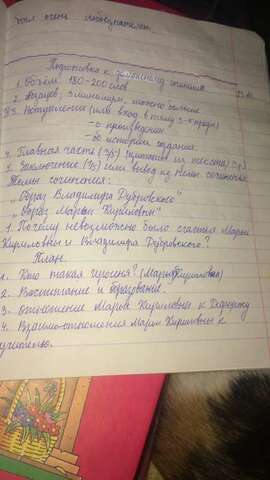 был очень
Подготовка к домашнему сочинению
1. Объём 180-200 слов
2. Абзацев, 3 минимум, можно больше
3. Вступление (или вход в тему 3-4 предл)
- о произведении
- об истории создания
4. Главная часть (3/5) (цитаты из текста)
4. Заключение (1/5) или вывод из темы сочинения
Темы сочинения:
"Образ Владимира Дубровского"
"Образ Марьи Кириловны"
1. Почему невозможно было счастье Марьи
Кириловны и Владимира Дубровского?
План.
1. Кто такая героиня? (Марья Кириловна)
2. Воспитание и образование.
3. Отношение Марьи Кириловны к Дефоржу
4. Взаимоотношения Марьи Кириловны к
учителю.